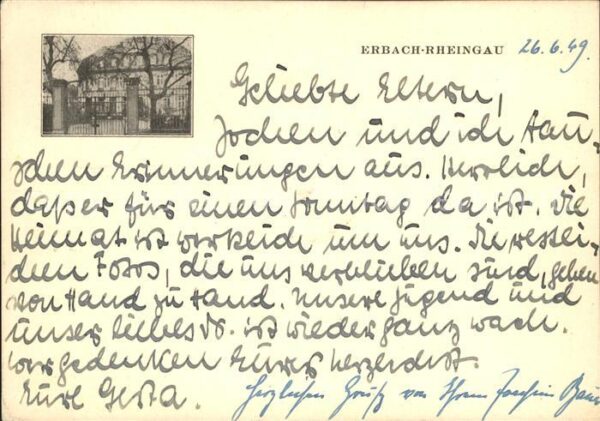 ERBACH-RHEINGAU 26.6.49.
Geliebte Eltern,
Jochen und ich tau-
schen Erinnerungen aus. Herrlich,
daß er für einen Sonntag da ist. Die
Heimat ist um uns.
Fotos, die uns verblieben sind, gehen
von Hand zu Hand. Unsere Jugend und
unser liebes ist wieder ganz wach.
Wir gedenken Eurer herzlichst.
Eure Gerta.
Herzlichen Gruß von Ihrem Joachim